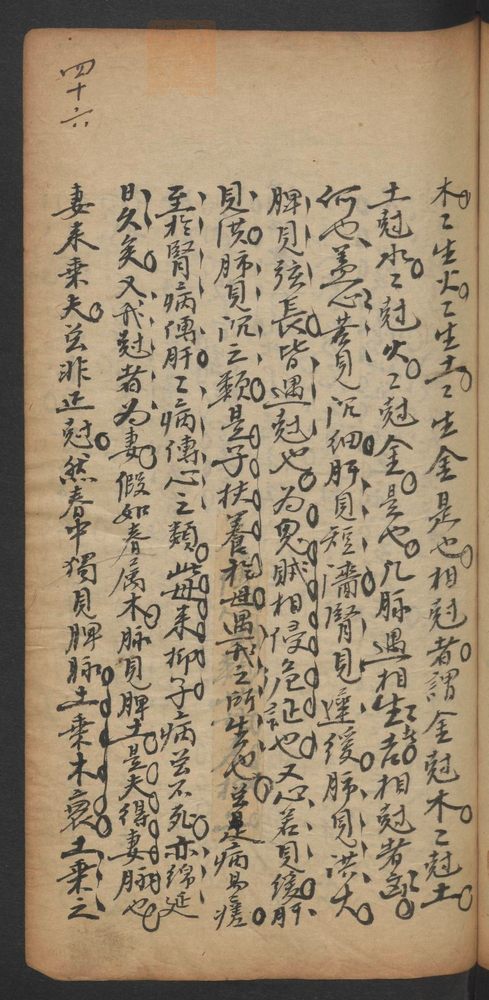 木〻生火〻生土〻生金是也相尅者謂金尅木〻尅土
土尅水〻尅火〻尅金是也凡脉遇相生者吉相尅者凶
何也盖心若見沉細肝見短濇腎見遲緩肺見洪大
脾見弦長皆遇尅也為鬼賊相侵危証也又心若見緩肝
見洪肺見沉之類是子扶養於母遇我之所生也並是病易瘥
至於腎病傳肝〻病傳心之類此母来抑子病並不死亦綿延
日久矣又我尅者為妻假如春属木脉見脾土是夫得妻脉也
妻来乗夫並非正尅然春中獨見脾脉土乗木衰土乗之
四十六